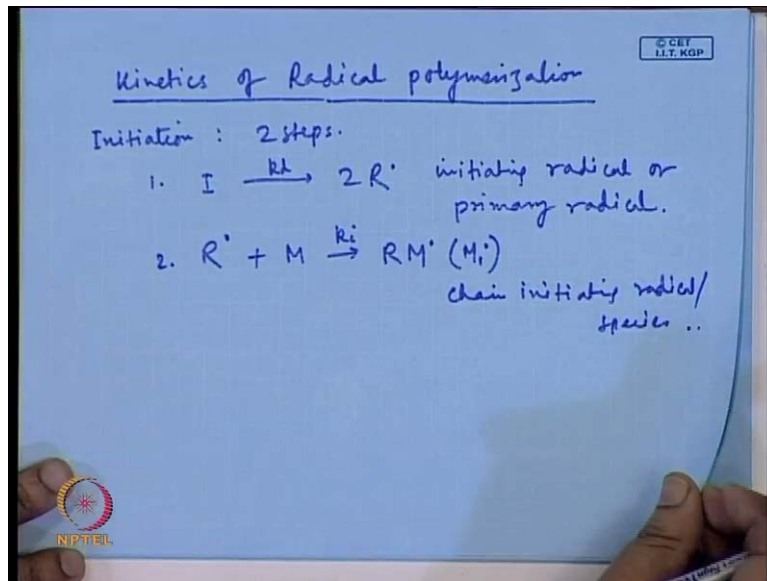 © CET
I.I.T. KGP
Kinetics of Radical polymerization
Initiation : 2 steps.
1. I kd→ 2R• initiating radical or
primary radical.
2. R• + M ki→ RM• (M₁•)
chain initiating radical/
species ..
NPTEL